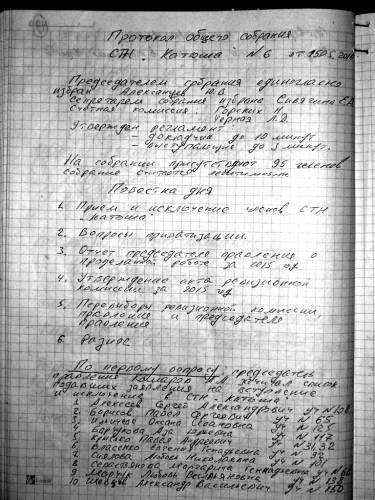 Протокол общего собрания
СТН "Катюша" №6 от 15.05.2016
Председателем собрания единогласно
избран Александров Ю.В.
Секретарем собрания избрана Сивягина Е.В.
Счетная комиссия Горских Н.
Черная Л.Д.
Утвержден регламент
докладчик до 10 минут
- выступающие до 3 минут.
На собрании присутствуют 95 членов
собрание считается легитимным
Повестка дня
1. Прием и исключение членов СТН
"Катюша"
2. Вопросы приватизации.
3. Отчет председателя правления о
проделанной работе за 2015 год
4. Утверждение акта ревизионной
комиссии за 2015 год
5. Перевыборы ревизионной комиссии,
правления и председателя
правления
6. Разное
По первому вопросу председатель
правления зачитал список
подавших заявления на вступление
и исключение в СТН "Катюша"
1. Алексеев Сергей Александрович уч №108
2. Борисов Павел Сергеевич уч № 65
3. Оксана Ивановна уч № 125
4. уч № 117
5. Павел Андреевич уч № 31,32
6. Власенко Евгения Геннадьевна уч № 92
7. Николаевна уч № 101
8. Маргарита Геннадьевна уч № 60
9.
10. Александр Васильевич уч № 150